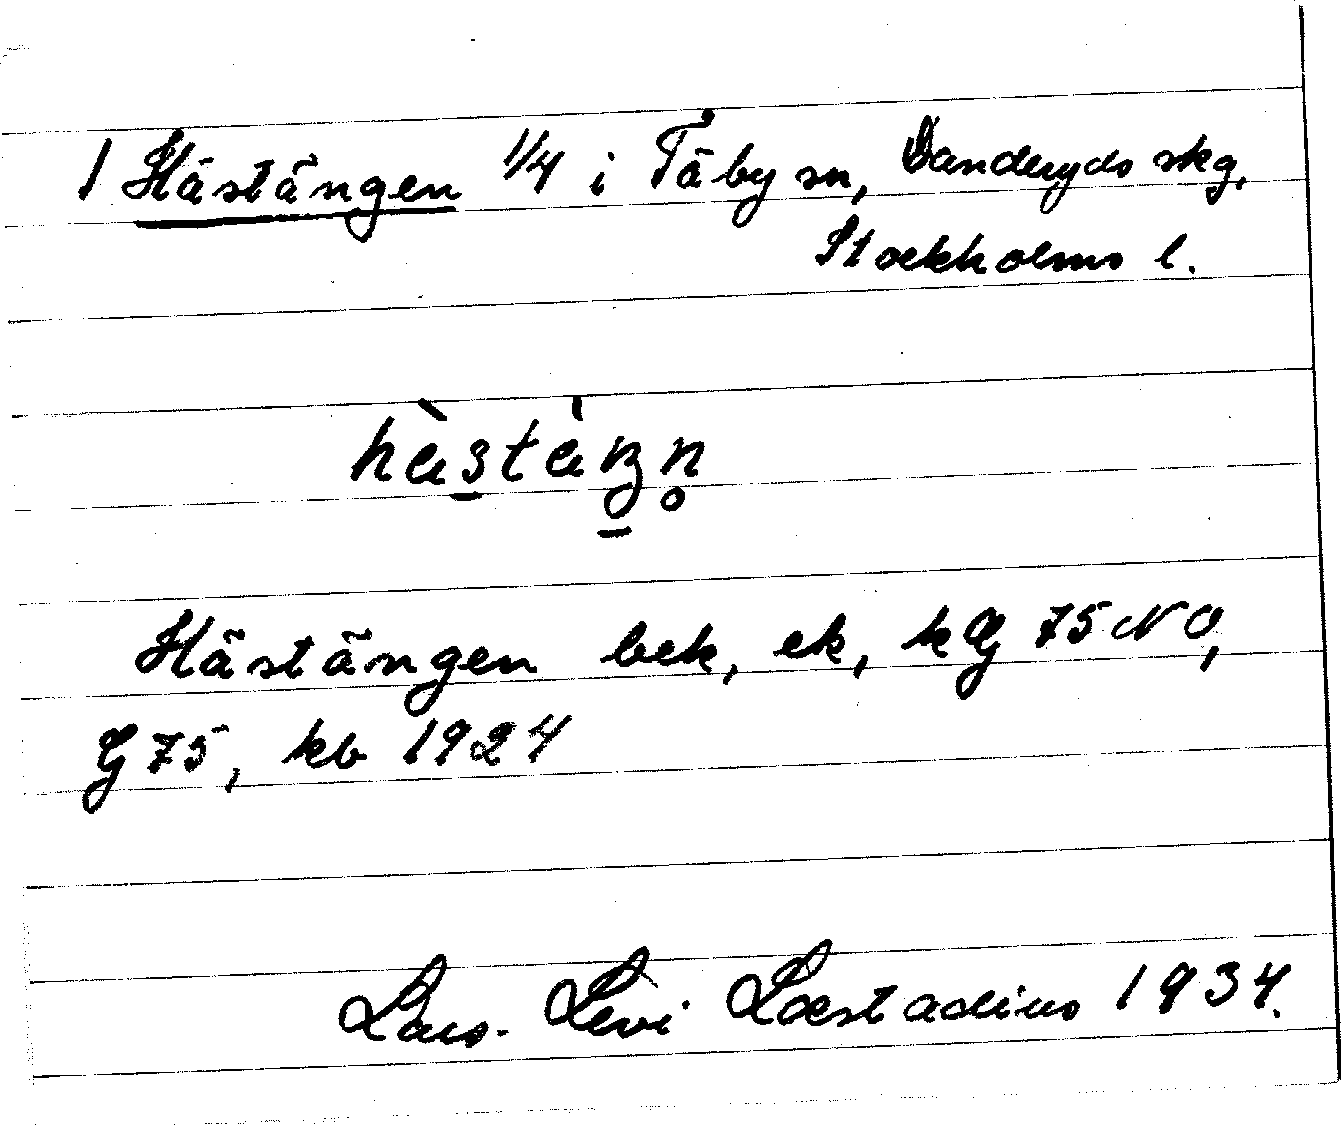 1 Hästängen 1/4 i Täby sn, Danderyds skg,
Stockholms l.
hàstàŋn̥
Hästängen bek, ek, kG 75 NO,
G 75, kb 1924
Lars-Levi Læstadius 1934.